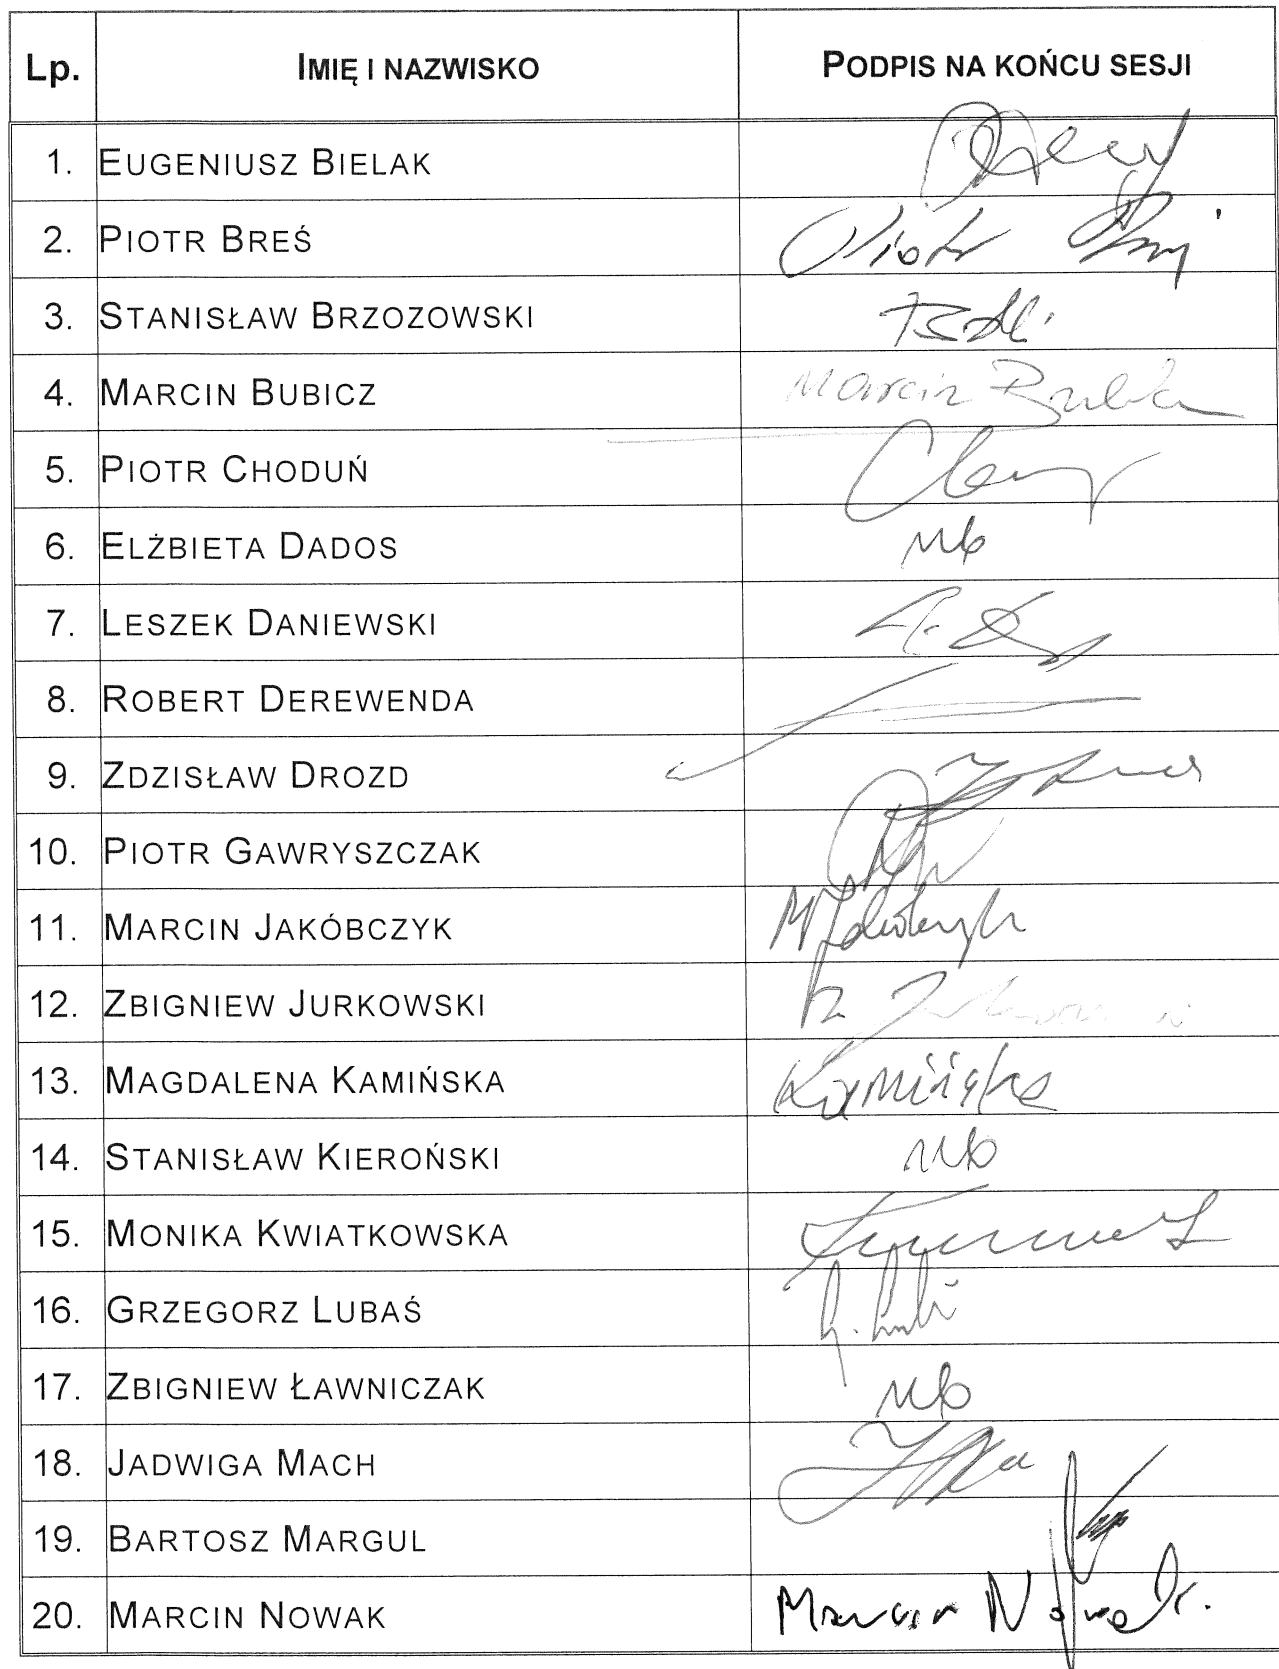 Lp. IMIĘ I NAZWISKO PODPIS NA KOŃCU SESJI
1. EUGENIUSZ BIELAK
2. PIOTR BREŚ Piotr
3. STANISŁAW BRZOZOWSKI
4. MARCIN BUBICZ Marcin
5. PIOTR CHODUŃ
6. ELŻBIETA DADOS Nb
7. LESZEK DANIEWSKI
8. ROBERT DEREWENDA
9. ZDZISŁAW DROZD
10. PIOTR GAWRYSZCZAK
11. MARCIN JAKÓBCZYK
12. ZBIGNIEW JURKOWSKI
13. MAGDALENA KAMIŃSKA Kamińska
14. STANISŁAW KIEROŃSKI Nb
15. MONIKA KWIATKOWSKA
16. GRZEGORZ LUBAŚ
17. ZBIGNIEW ŁAWNICZAK Nb
18. JADWIGA MACH
19. BARTOSZ MARGUL
20. MARCIN NOWAK Marcin Nowak